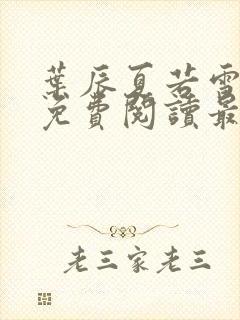 葉辰夏若雪
免費閱讀最
老三家老三